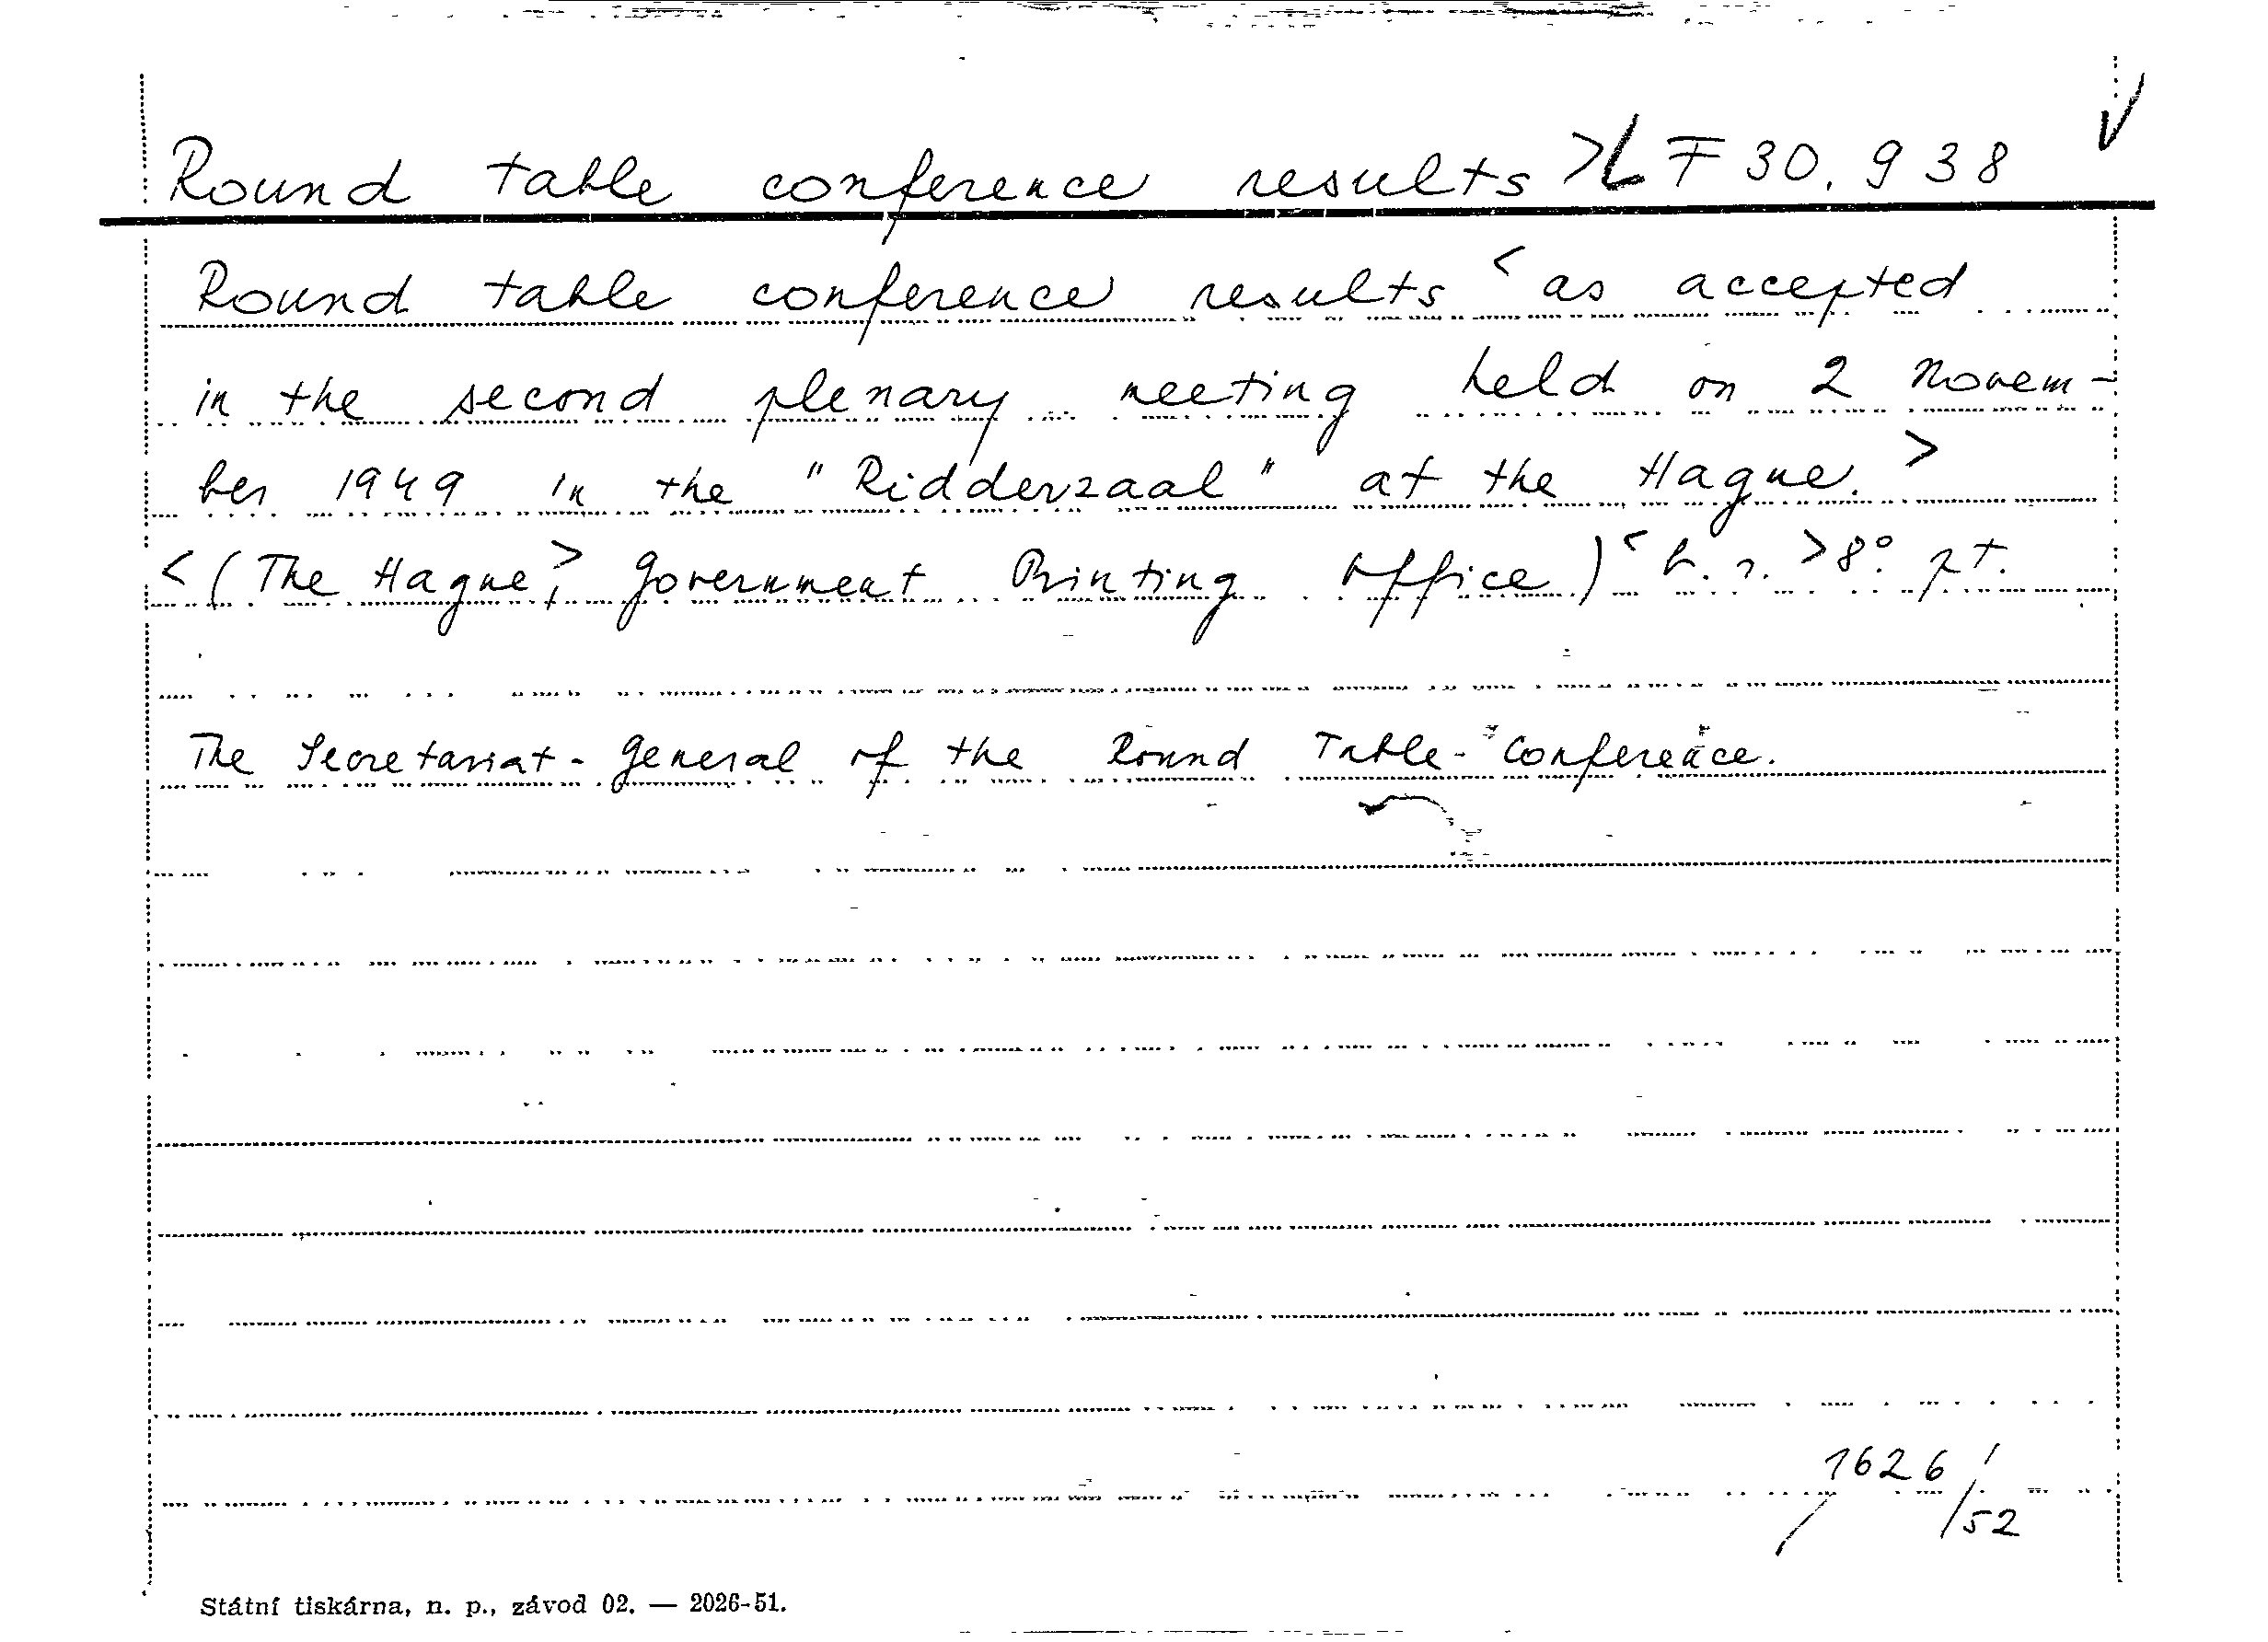 Round table conference results > F 30.938
Round table conference results < as accepted
in the second plenary meeting held on 2 Novem-
ber 1949 in the "Ridderzaal" at the Hague. >
< (The Hague, > Government Printing Office) < b. r. > 8°. pt.
The Secretariat-General of the Round Table-Conference.
1626/52
Státní tiskárna, n. p., závod 02. — 2026-51.